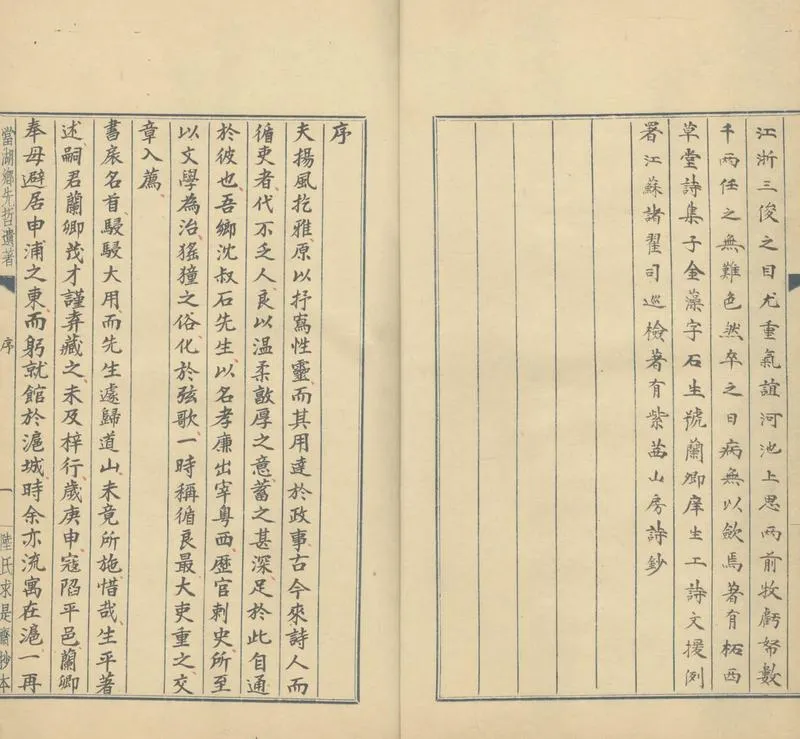 江浙三俊之目尤重氣誼河池上思兩前牧虧帑數
千兩任之無難色然卒之日病無以歛焉著有柘西
草堂詩集子金藻字石生號蘭卿庠生工詩文援例
署江蘇諸翟司巡檢著有紫茜山房詩鈔
序
夫揚風扢雅原以抒寫性靈而其用達於政事古今來詩人而
循吏者代不乏人良以温柔敦厚之意蓄之甚深足於此自通
於彼也吾鄉沈叔石先生以名孝廉出宰粤西歷官刺史所至
以文學為治猺獞之俗化於弦歌一時稱循良最大吏重之交
章入薦
書扆名首駸駸大用而先生遽歸道山未竟所施惜哉生平著
述嗣君蘭卿茂才謹弆藏之未及梓行歲庚申寇陷平邑蘭卿
奉母避居申浦之東而躬就館於滬城時余亦流寓在滬一再
當湖鄉先哲遺著
序
一
陸氏求是齋抄本